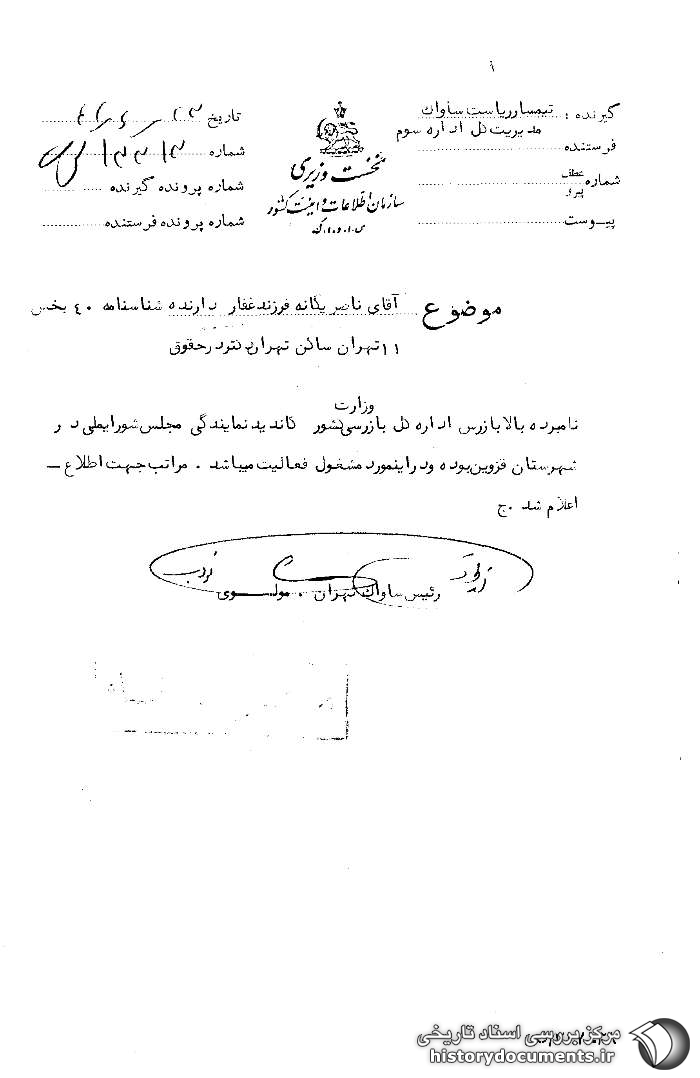 ۱
گیرنده : تیمسار ریاست ساواک
مدیریت کل اداره سوم
فرستنده
شماره عطف
پیرو
پیوست
نخست وزیری
سازمان اطلاعات و امنیت کشور
س.ا.و.ا.ک
تاریخ
شماره ۱۳۳۱۳
شماره پرونده گیرنده
شماره پرونده فرستنده
موضوع آقای ناصر یگانه فرزند غفار دارنده شناسنامه ۴۰ بخش
۱۱ تهران ساکن تهران دکتر در حقوق
نامبرده بالا بازرس اداره کل بازرسی وزارت کشور کاندید نمایندگی مجلس شورایملی در
شهرستان قزوین بوده و در اینمورد مشغول فعالیت میباشد . مراتب جهت اطلاع –
اعلام شد . ج
رئیس ساواک تهران . مولوی
مرکز بررسی اسناد تاریخی
historydocuments.ir